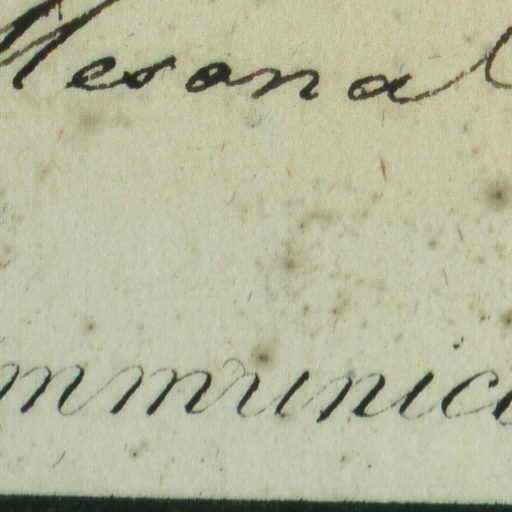 Mesona
mmunic